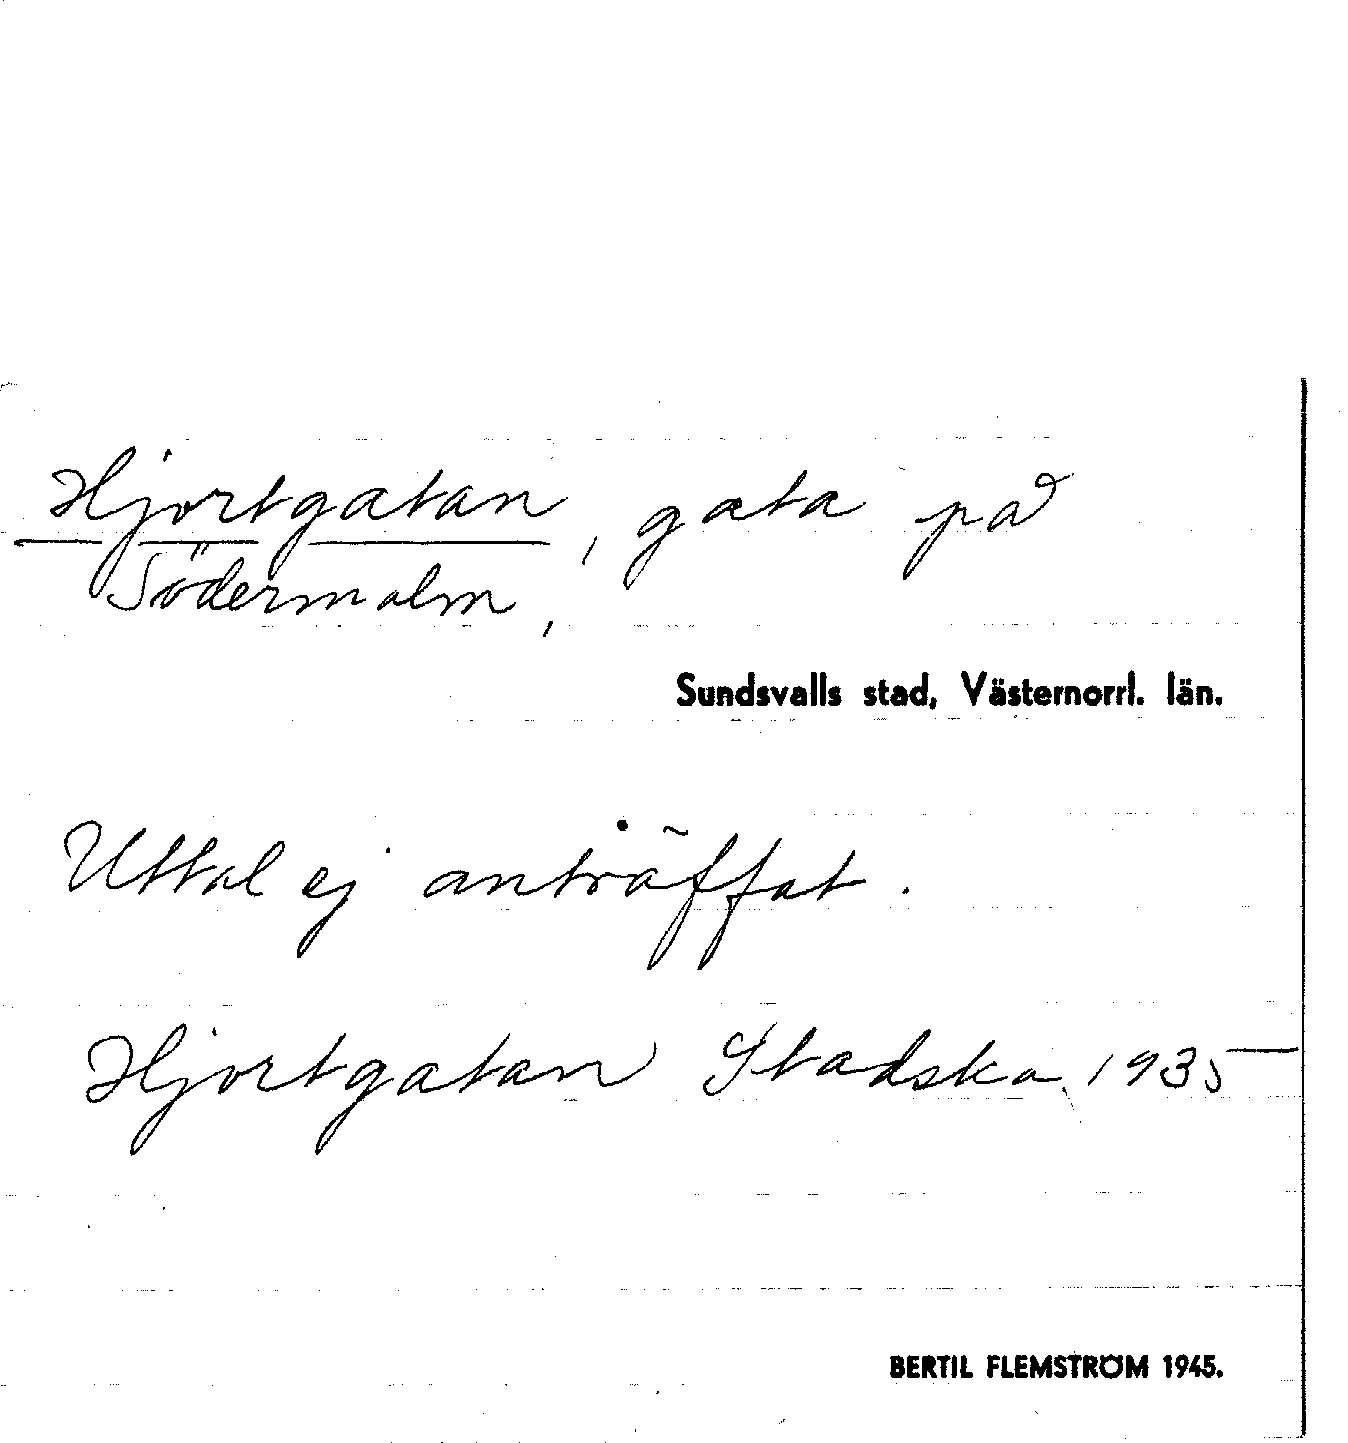 Hjortgatan, gata på
Södermalm,
Sundsvalls stad, Västernorrl. län.
Uttal ej anträffat.
Hjortgatan Stadska. 1935
BERTIL FLEMSTRÖM 1945.